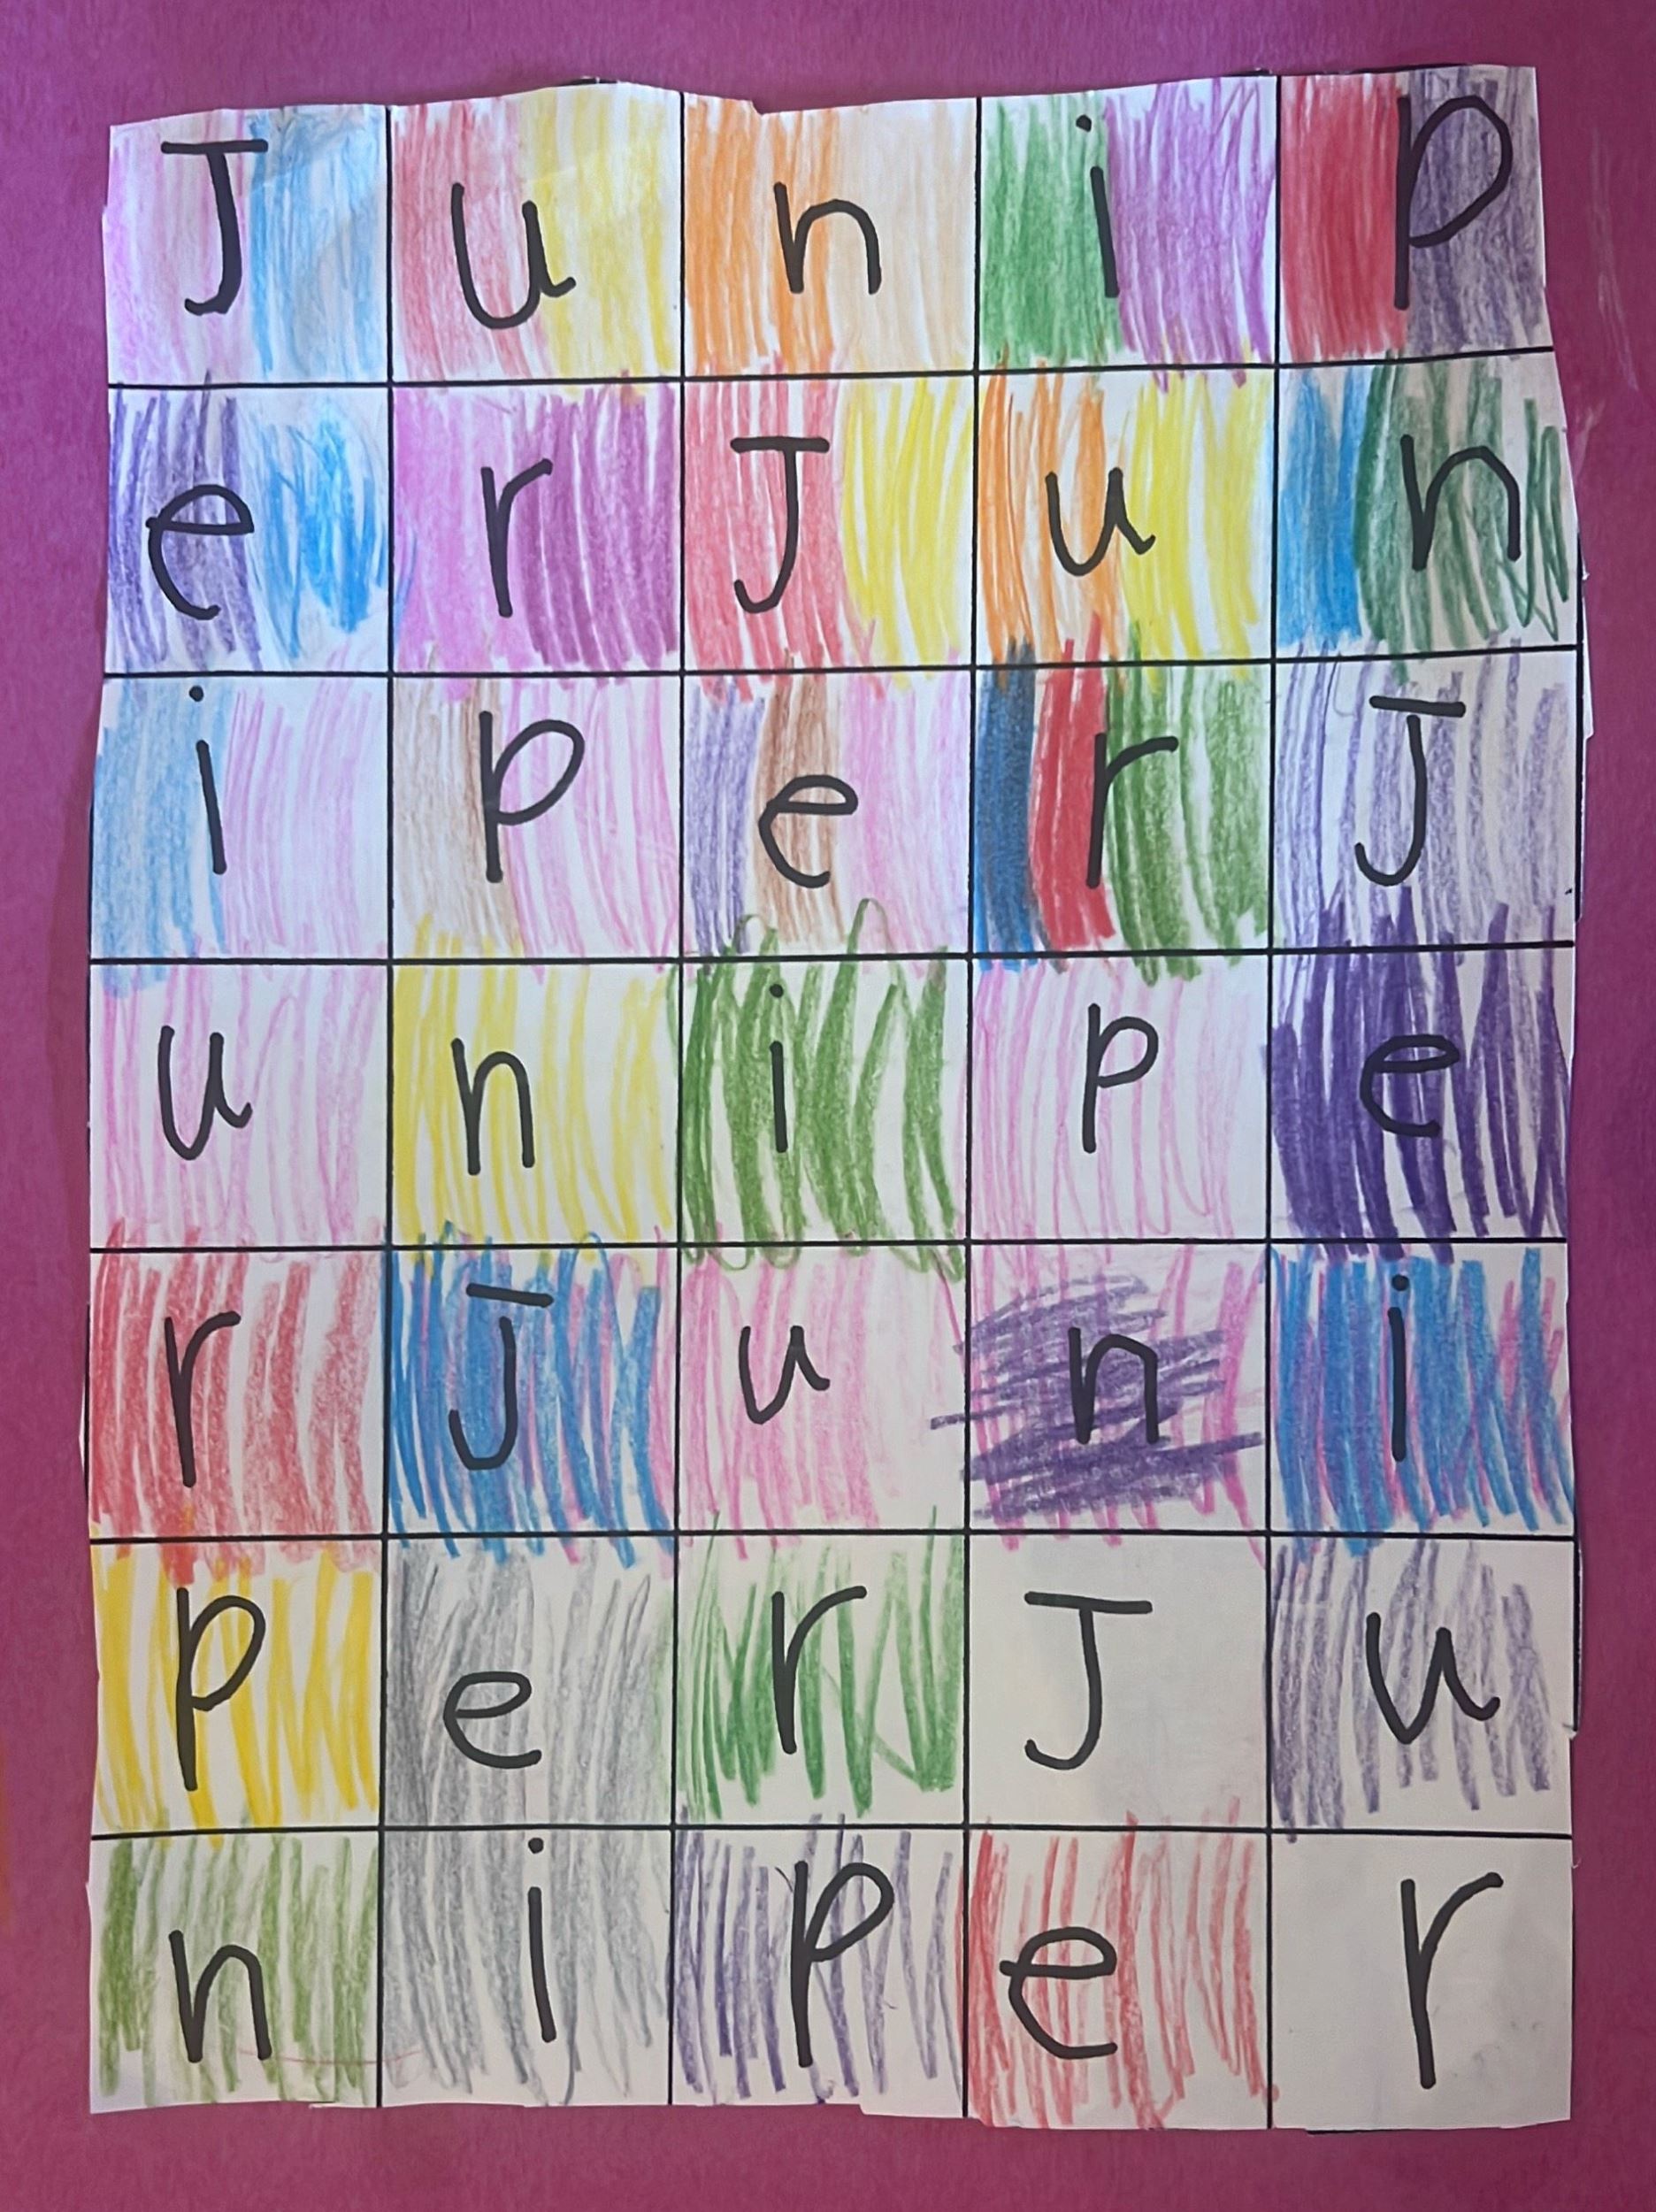 J u n i p
e r J u n
i p e r J
u n i p e
r J u n i
p e r J u
n i p e r